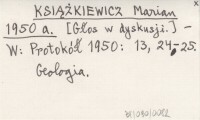 KSIĄŻKIEWICZ Marian
1950 a. [Głos w dyskusji.] –
W: Protokół 1950: 13, 24-25.
Geologia.